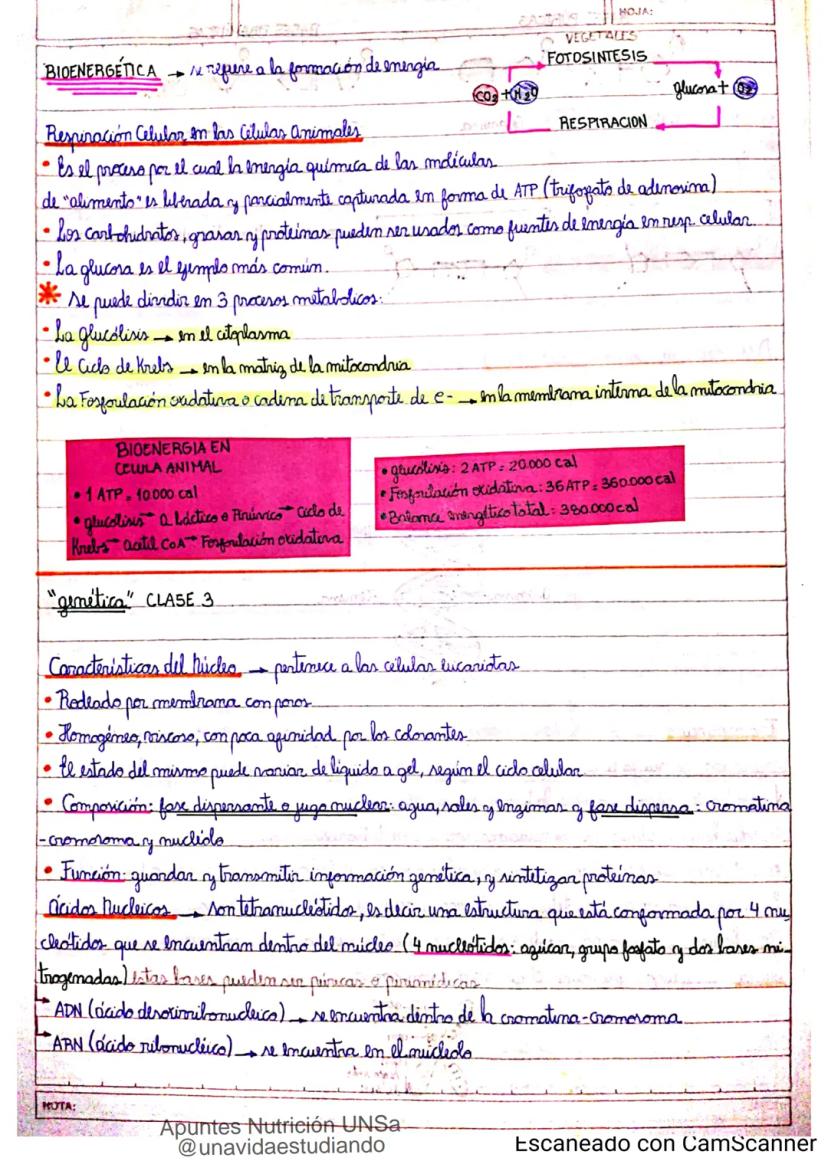 HOJA:
BIOENERGÉTICA → se refiere a la formación de energía
VEGETALES
FOTOSINTESIS
CO2 + H2O
glucosa + O2
RESPIRACION
Respiración Celular en las Células Animales
• Es el proceso por el cual la energía química de las moléculas
de "alimento" es liberada y parcialmente capturada en forma de ATP (trifofato de adenosina)
• Los carbohidratos, grasas y proteínas pueden ser usados como fuentes de energía en resp. celular.
• La glucosa es el ejemplo más común.
* Se puede dividir en 3 procesos metabólicos:
• La glucólisis → en el citoplasma
• El Ciclo de Krebs → en la matriz de la mitocondria
• La Fosforilación oxidativa o cadena de transporte de e- → en la membrana interna de la mitocondria
BIOENERGIA EN
CELULA ANIMAL
• 1 ATP = 10000 cal
• glucolisis → a. Láctico o Pirúvico → Ciclo de
Krebs → acetil CoA → Fosforilación oxidativa
• glucolisis: 2 ATP = 20.000 cal
• Fosforilación oxidativa: 36 ATP = 360.000 cal
• Balance energético total: 380.000 cal
"genética" CLASE 3
Características del Núcleo → pertenece a las células eucariotas
• Rodeado por membrana con poros
• Homogéneo, viscoso, con poca afinidad por los colorantes
• El estado del mismo puede variar de líquido a gel, según el ciclo celular
• Composición: fase dispersante o jugo nuclear: agua, sales y enzimas y fase dispersa: cromatina
-cromosoma y nucléolo
• Función: guardar y transmitir información genética, y sintetizar proteínas
Ácidos Nucleicos → son tetranucleótidos, es decir una estructura que está conformada por 4 nu
cleótidos que se encuentran dentro del núcleo (4 nucleótidos: azúcar, grupo fosfato y dos bases ni-
trogenadas) estas bases pueden ser púricas o pirimídicas
→ ADN (ácido desoxirribonucleico) → se encuentra dentro de la cromatina-cromosoma
→ ARN (ácido ribonucléico) → se encuentra en el nucleolo
NOTA:
Apuntes Nutrición UNSa
@unavidaestudiando
Escaneado con CamScanner